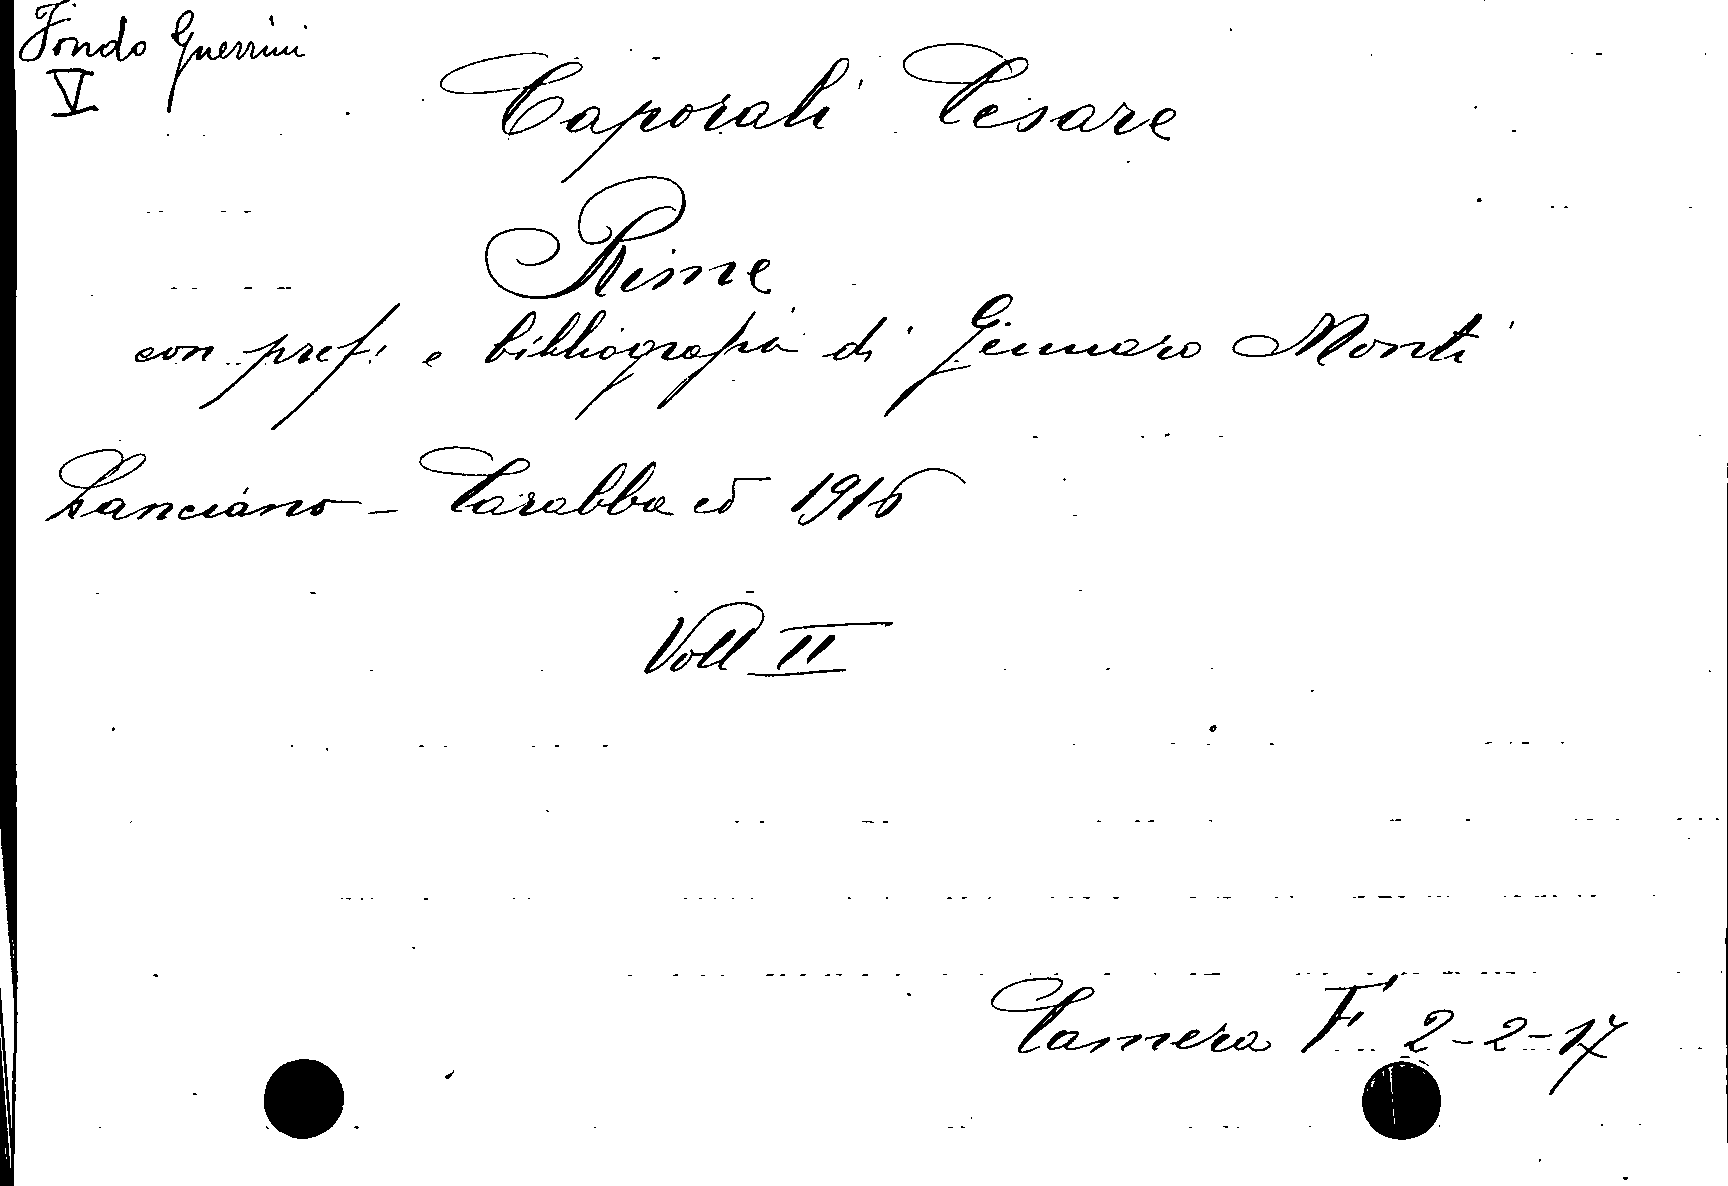 Fondo Guerrini
V
Caporali Cesare
Rime
con pref. e bibliografia di Gennaro Monti
Lanciano - Carabba ed 1916
Voll II
Camera F 2-2-17